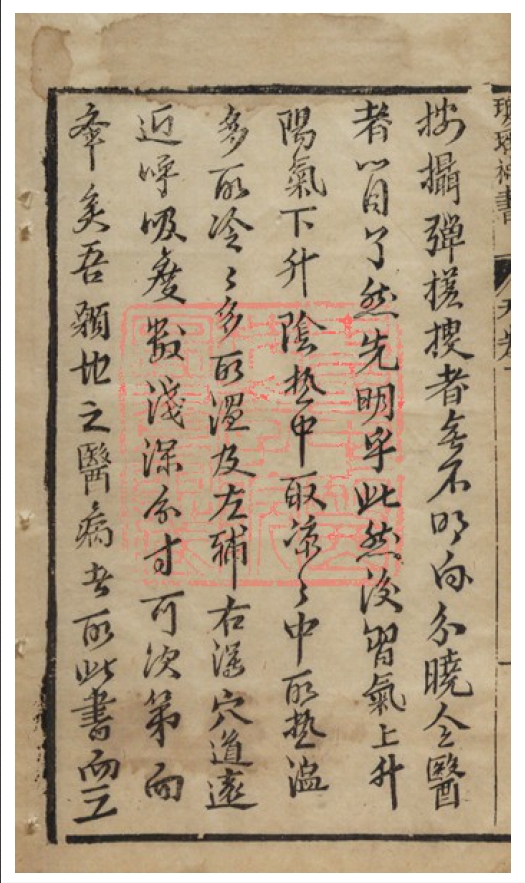 瓊瑤神書
按攝彈搓搜者無不明白分曉令醫
者一目了然先明乎此然後習氣上升
陽氣下升陰熱中取涼〻中取熱溫
多取冷〻多取溫及左補右瀉穴道遠
近呼吸度數淺深分寸可次第而
牽矣吾願也之醫病者取此書而三